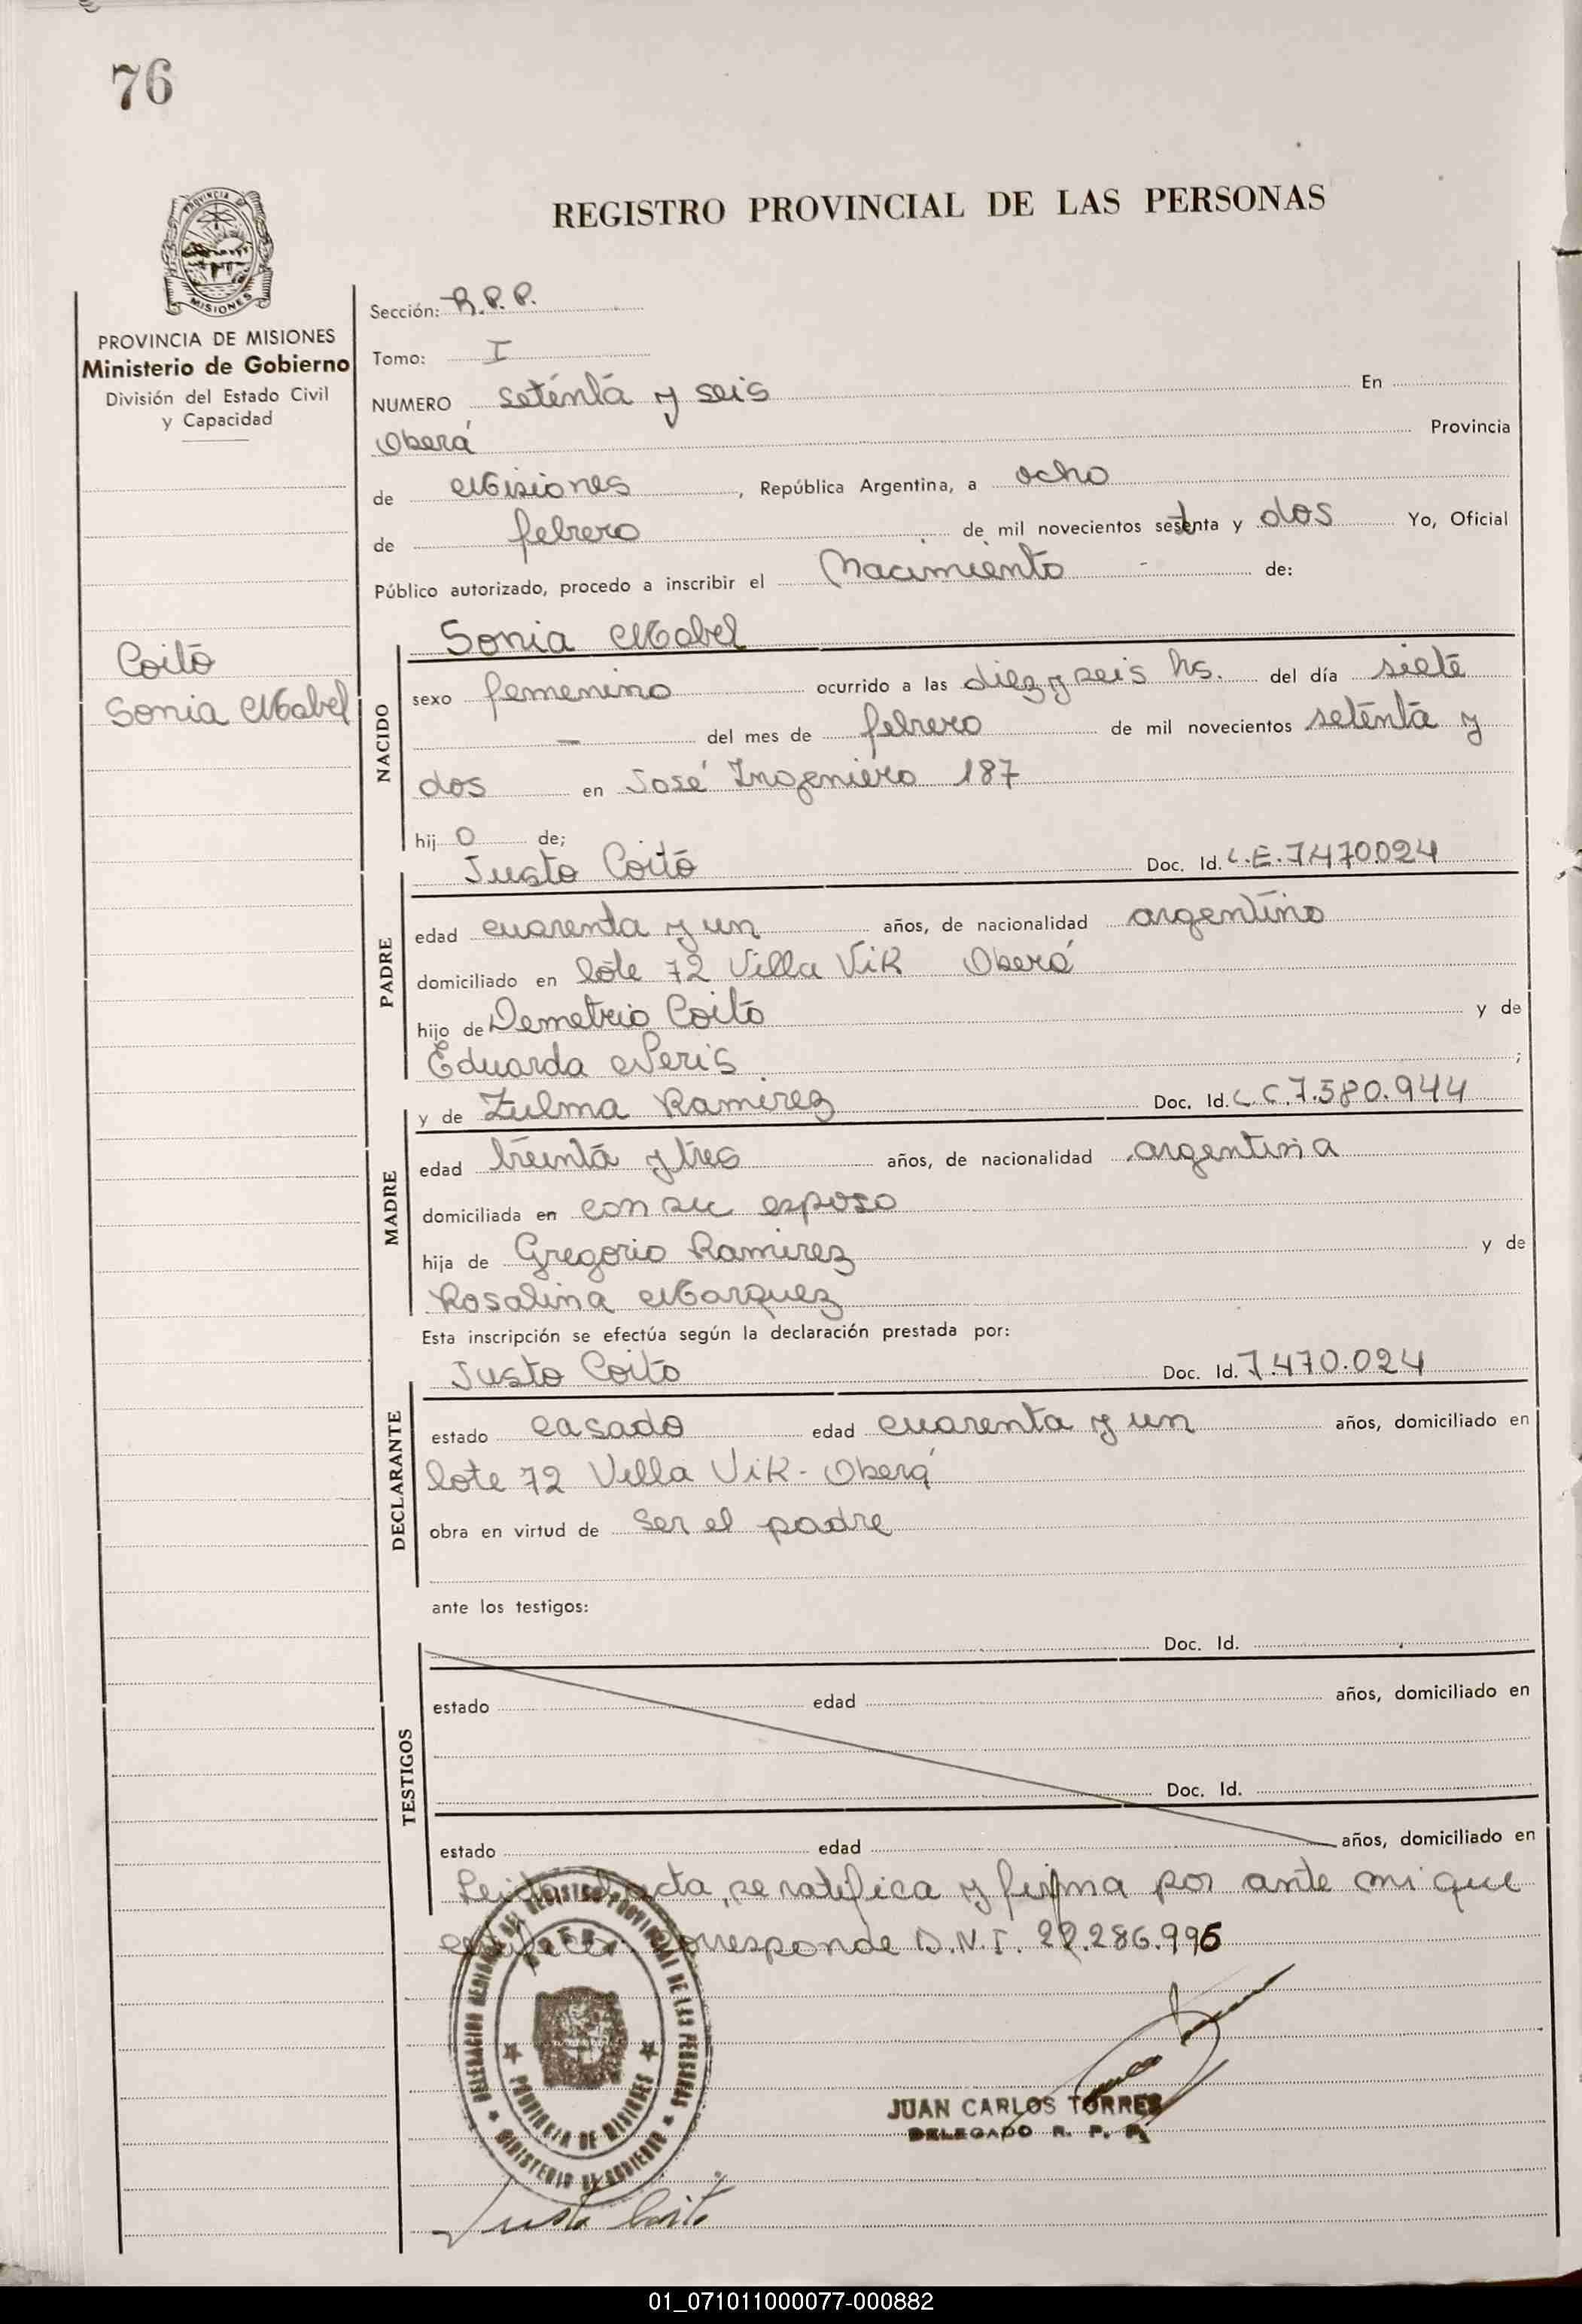 76
PROVINCIA DE MISIONES
REGISTRO PROVINCIAL DE LAS PERSONAS
PROVINCIA DE MISIONES
Ministerio de Gobierno
División del Estado Civil
y Capacidad
Coito
Sonia Mabel
Sección: R.P.P.
Tomo: I
NUMERO setenta y seis En
Oberá Provincia
de Misiones, República Argentina, a ocho
de febrero de mil novecientos setenta y dos Yo, Oficial
Público autorizado, procedo a inscribir el Nacimiento - de:
Sonia Mabel
NACIDO
sexo femenino ocurrido a las diez y seis hs. del día siete
— del mes de febrero de mil novecientos setenta y
dos en José Ingeniero 187
hij o de;
Justo Coito Doc. Id. L.E. 7470024
PADRE
edad cuarenta y un años, de nacionalidad argentino
domiciliado en lote 72 Villa Vik Oberá
hijo de Demetrio Coito y de
Eduarda Neris ;
y de Zulma Ramirez Doc. Id. L C 7.580.944
MADRE
edad treinta y tres años, de nacionalidad argentina
domiciliada en con su esposo
hija de Gregorio Ramirez y de
Rosalina Marquez
Esta inscripción se efectúa según la declaración prestada por:
Justo Coito Doc. Id. 7.470.024
DECLARANTE
estado casado edad cuarenta y un años, domiciliado en
lote 72 Villa Vik - Oberá
obra en virtud de ser el padre
ante los testigos:
Doc. Id.
TESTIGOS
estado edad años, domiciliado en
Doc. Id.
estado edad años, domiciliado en
Leida el acta, se ratifica y firma por ante mi que
certifico. Corresponde D.N.I. 22.286.996
DELEGACION REGIONAL DEL REGISTRO PROVINCIAL DE LAS PERSONAS
OBERA
PROVINCIA DE MISIONES
MINISTERIO DE GOBIERNO
JUAN CARLOS TORRES
DELEGADO R. P. P.
Justo Coito
01_071011000077-000882